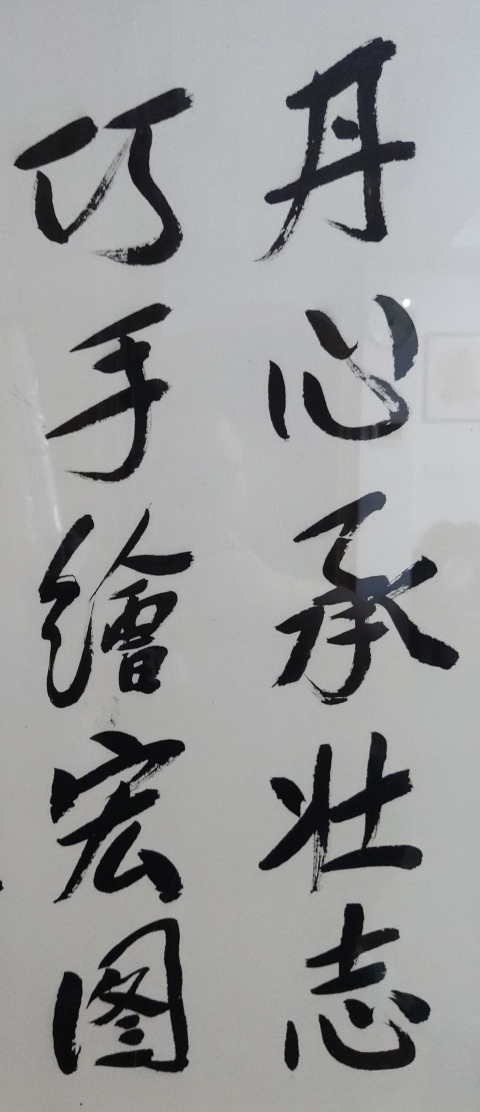 丹心承壮志
巧手繪宏图